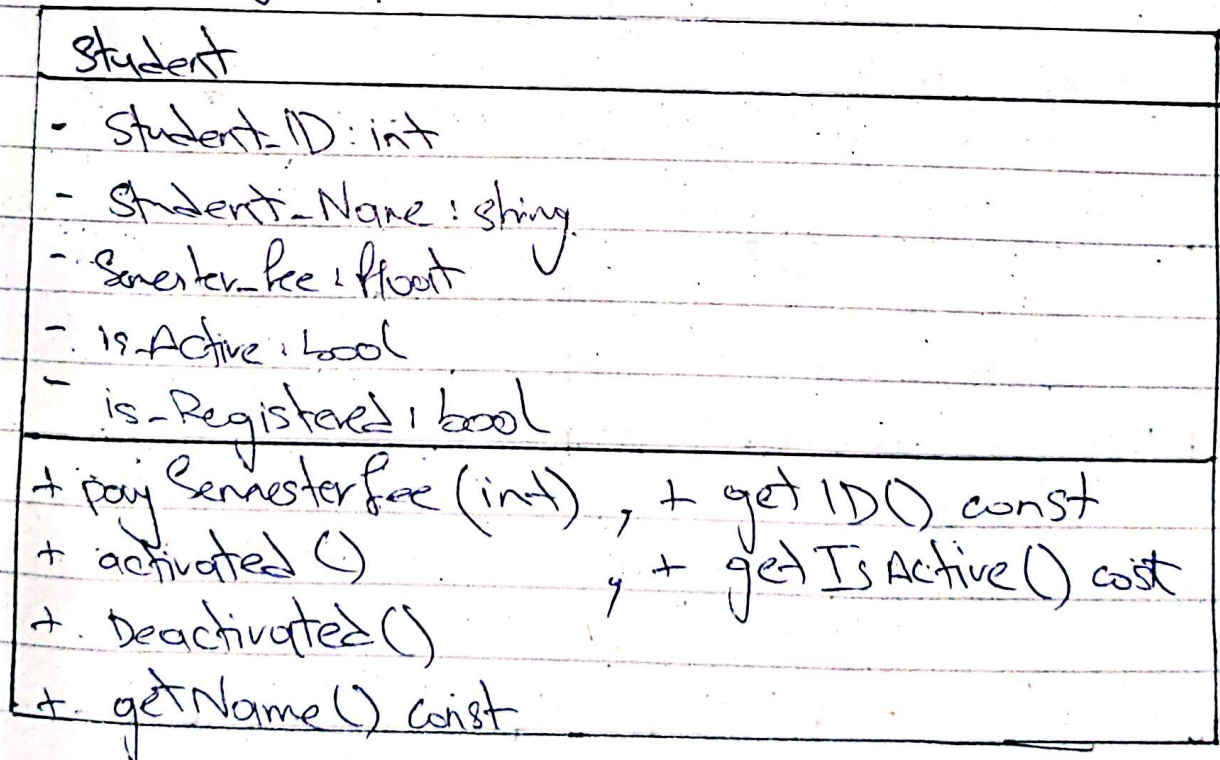 Student
- Student_ID : int
- Student_Name : string
- Semester_fee : float
- is_Active : bool
- is_Registered : bool
+ pay Semester fee (int) , + get ID() const
+ activated () , + get Is Active () cost
+ Deactivated ()
+ getName () const